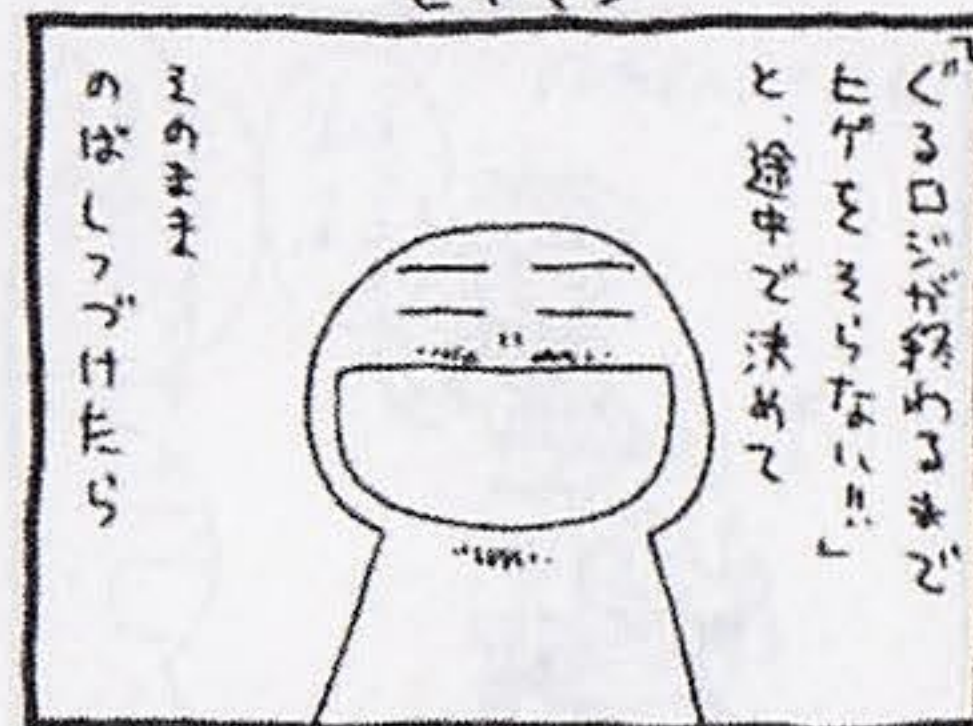 「ぐるロジが終わるまで
ヒゲをそらない!!」
と、途中で決めて
そのまま
のばしつづけたら